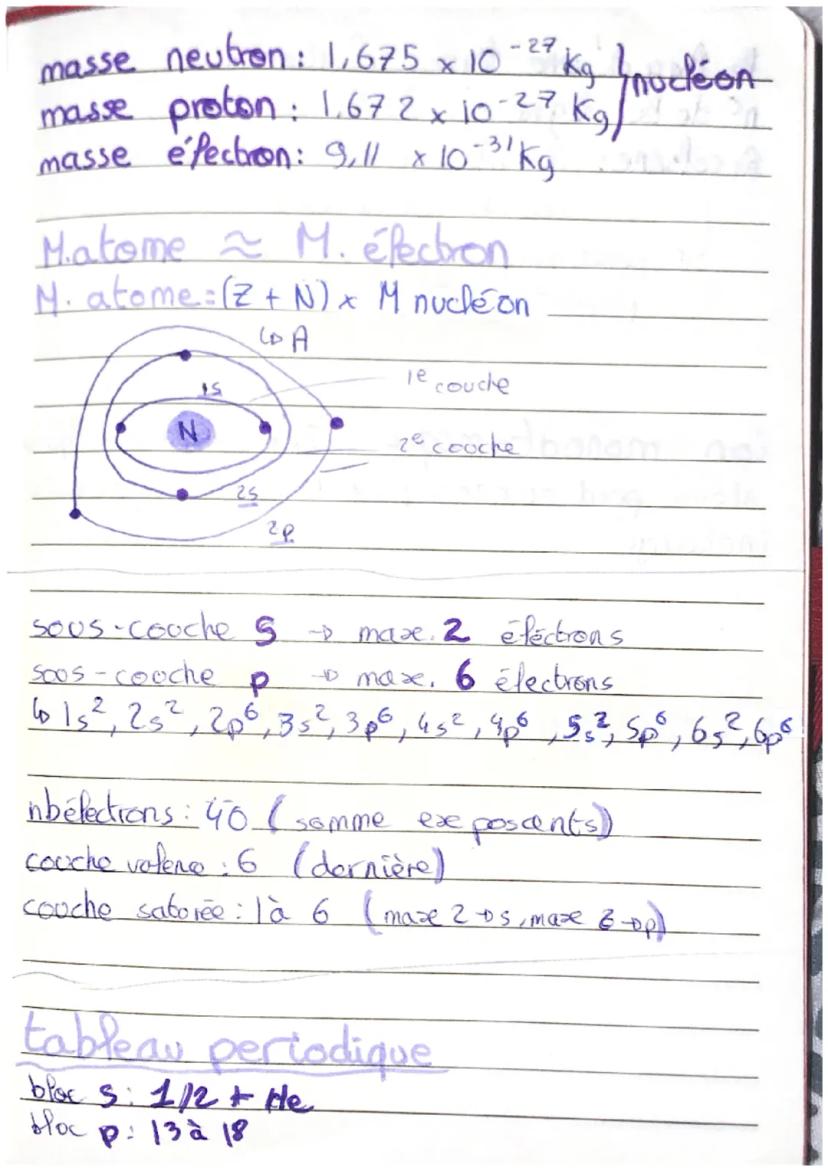 masse neutron : 1,675 x 10⁻²⁷ kg } nucléon
masse proton : 1,672 x 10⁻²⁷ Kg
masse électron : 9,11 x 10⁻³¹ Kg
M.atome ≈ M. électron
M. atome = (Z + N) x M nucléon
↳ A
1S
1e couche
N
2e couche
2s
2p
sous-couche S → max. 2 électrons
sous-couche p → max. 6 électrons
↳ 1s², 2s², 2p⁶, 3s², 3p⁶, 4s², 4p⁶, 5s², 5p⁶, 6s², 6p⁶
nb électrons : 40 (somme exposants)
couche valence : 6 (dernière)
couche saturée : 1 à 6 (max 2 → s, max 6 → p)
tableau periodique
bloc S : 1/2 + He
bloc p : 13 à 18